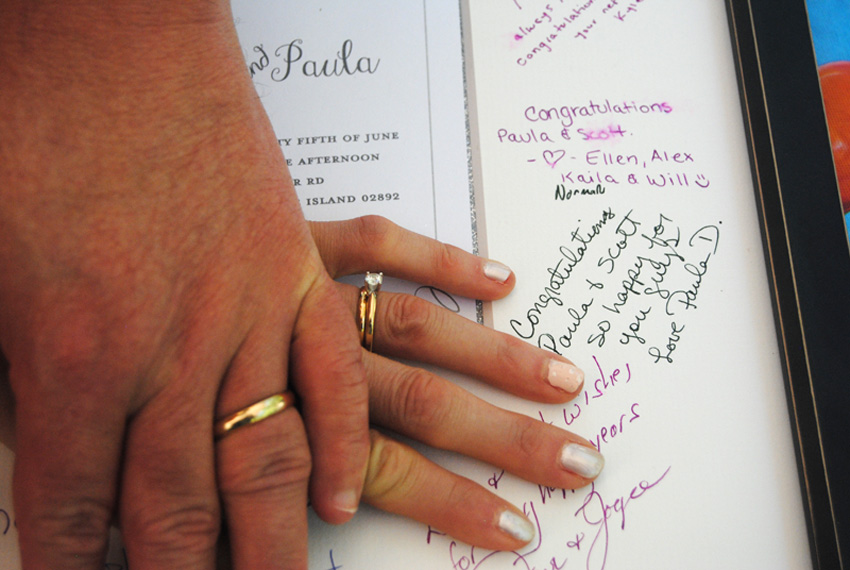 and Paula
TY FIFTH OF JUNE
E AFTERNOON
R RD
ISLAND 02892
always
congratulations
your
Kyle
Congratulations
Paula & Scott.
- ♡ - Ellen, Alex
Kaila & Will
Norman
Congratulations
Paula & Scott
so happy for
you guys
Love Paula D.
wishes,
years
for
& Joyce